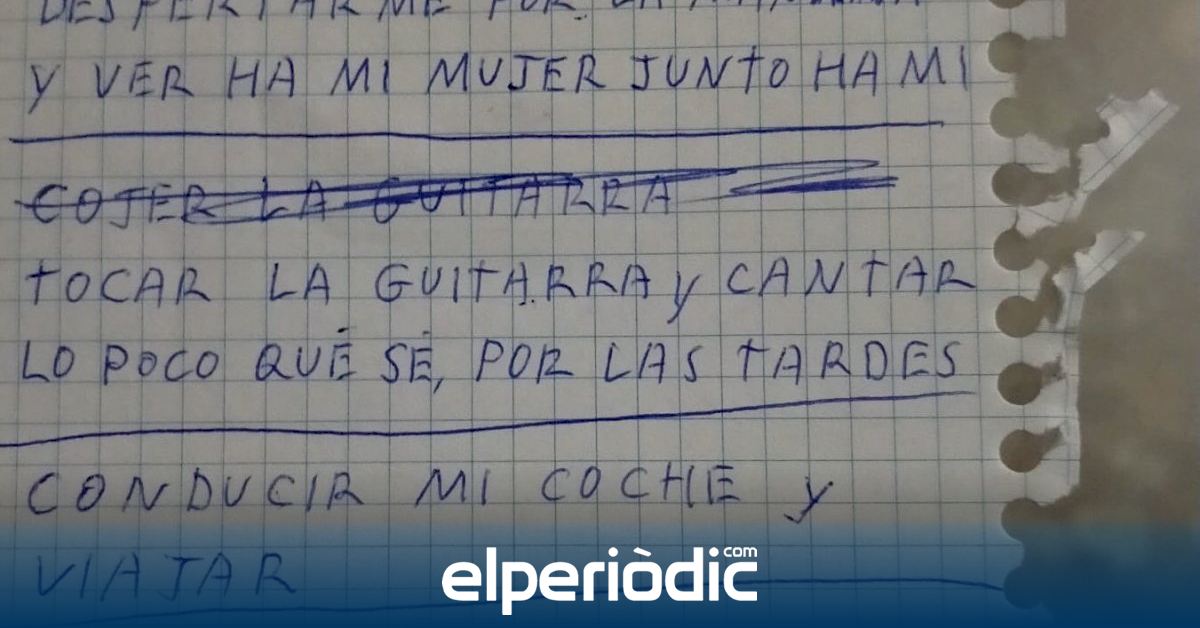 DESPERTARME POR LA MAÑANA
Y VER HA MI MUJER JUNTO HA MI
COJER LA GUITARRA
TOCAR LA GUITARRA Y CANTAR
LO POCO QUÉ SÉ, POR LAS TARDES
CONDUCIR MI COCHE Y
VIAJAR
elperiòdic.com